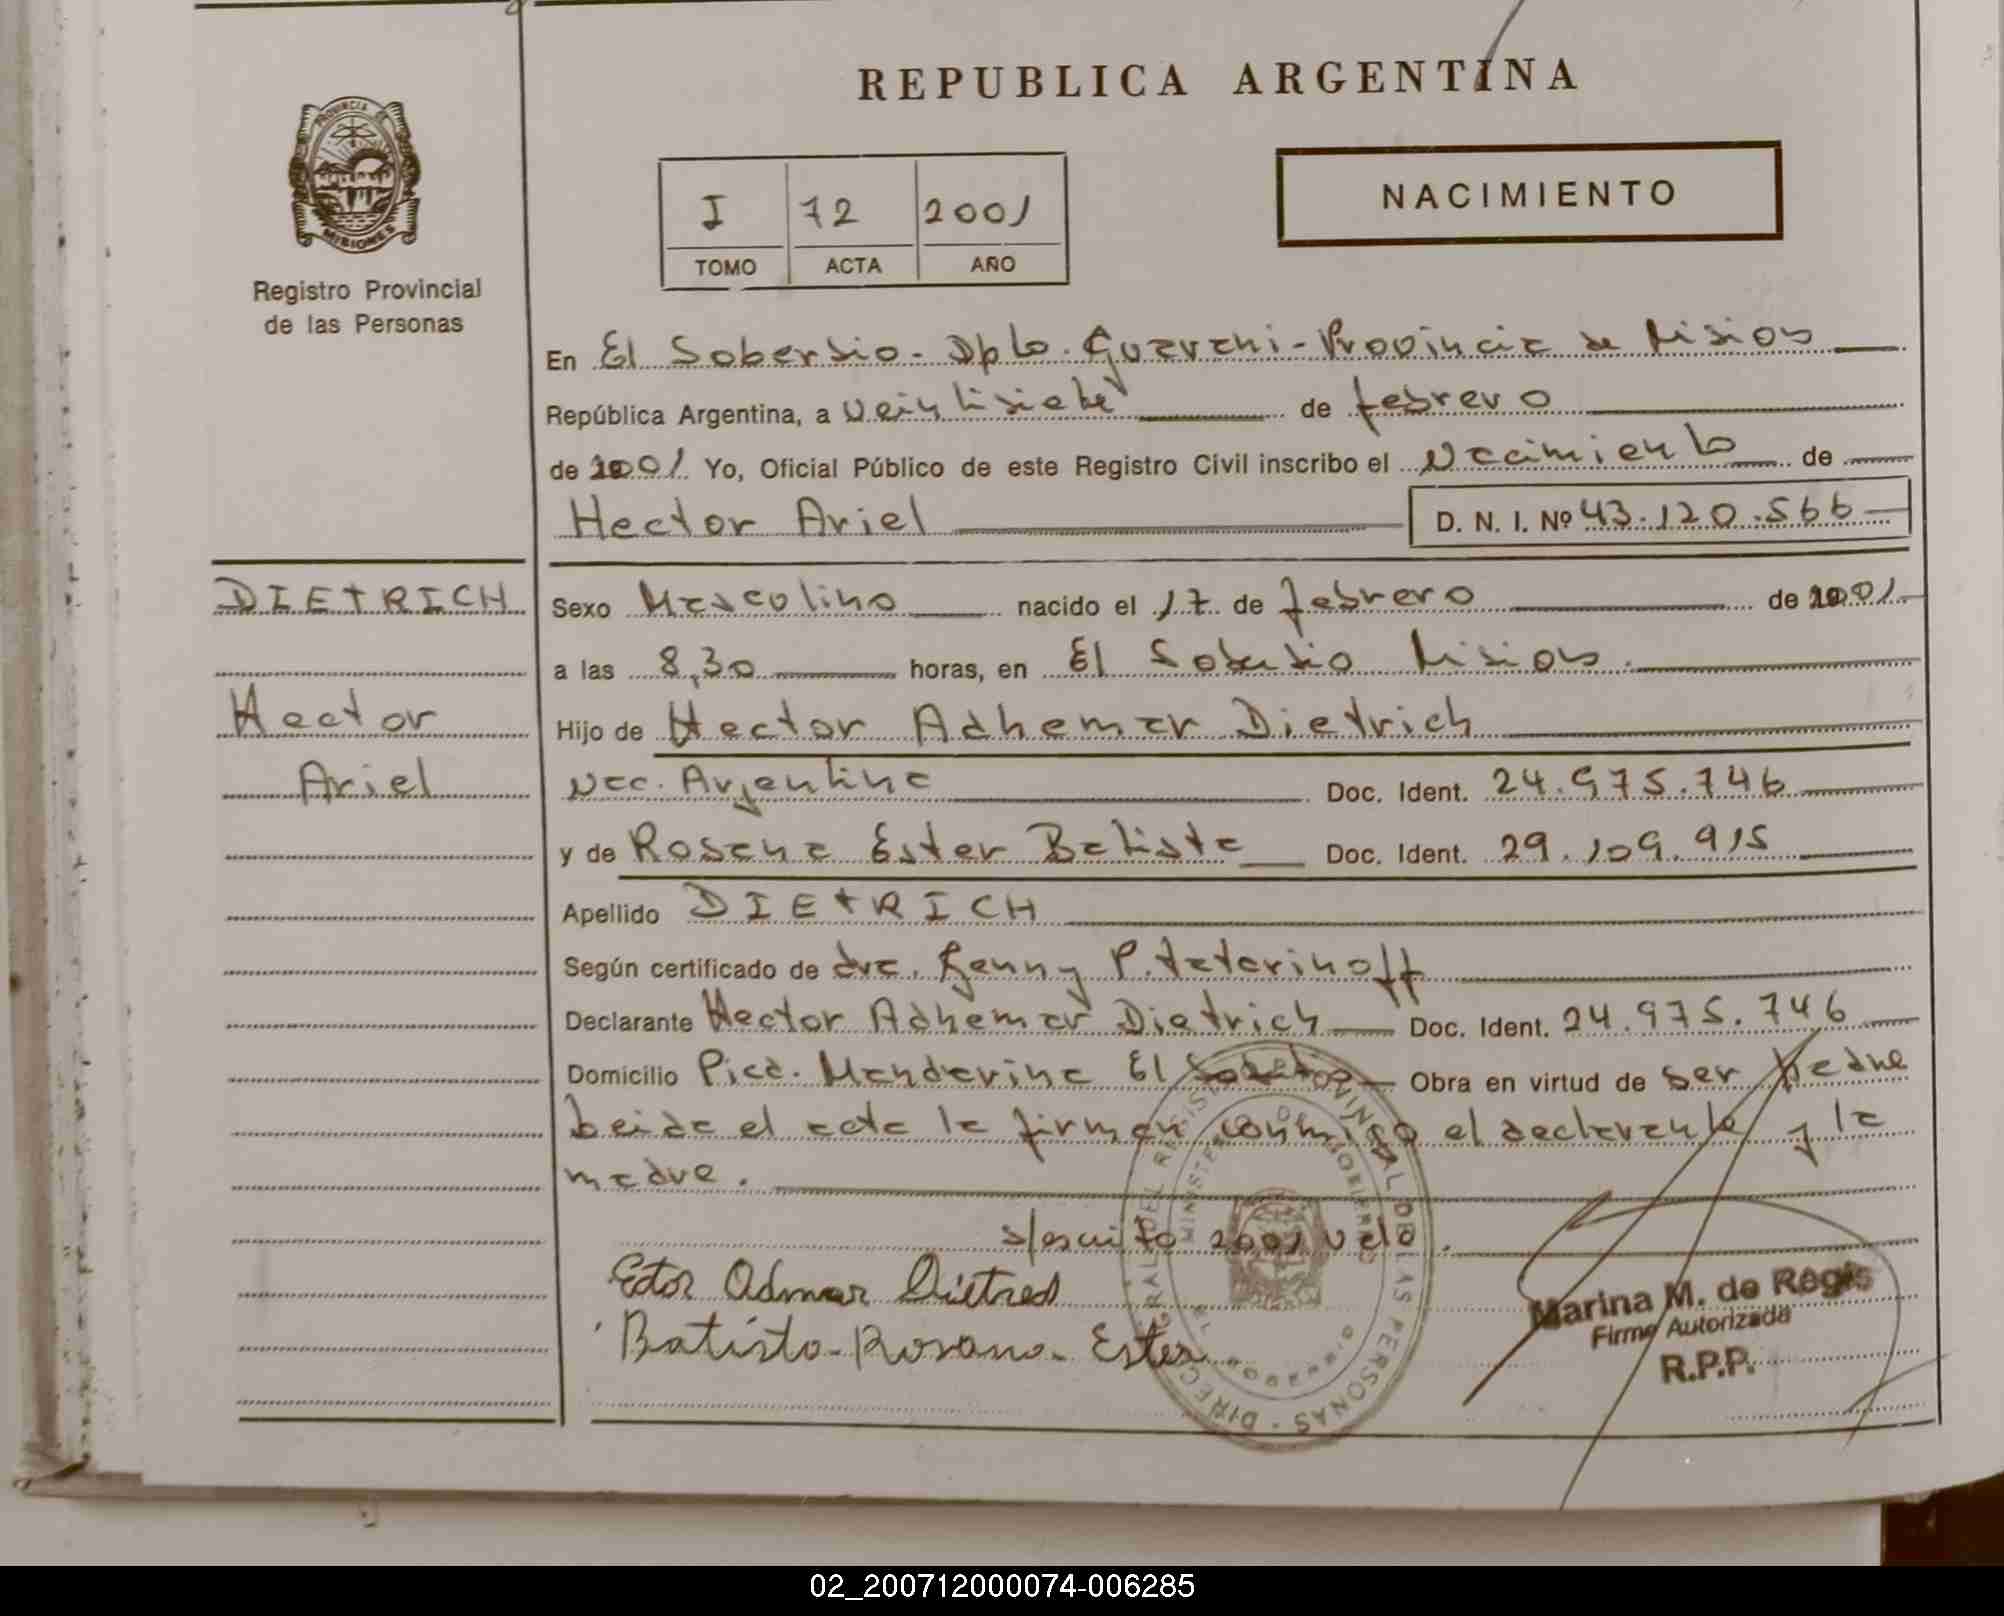 REPUBLICA ARGENTINA
PROVINCIA DE
MISIONES
Registro Provincial
de las Personas
I 72 2001
TOMO ACTA AÑO
NACIMIENTO
En El Soberbio - Dpto. Guarani - Provincia de Misiones
República Argentina, a veintisiete de febrero
de 2001 Yo, Oficial Público de este Registro Civil inscribo el Nacimiento de
Hector Ariel D. N. I. Nº 43.120.566
DIETRICH
Hector
Ariel
Sexo Masculino nacido el 17 de febrero de 2001
a las 8,30 horas, en El Soberbio Misiones
Hijo de Hector Adhemar Dietrich
Nac. Argentina Doc. Ident. 24.975.746
y de Rosana Ester Batista Doc. Ident. 29.109.915
Apellido DIETRICH
Según certificado de dra. Genny P. Tatarinoff
Declarante Hector Adhemar Dietrich Doc. Ident. 24.975.746
Domicilio Picd. Mandarina El Soberbio Obra en virtud de ser padre
Leida el acta la firman conmigo el declarante y la
madre.
s/escrito 2001 vale.
Ector Admar Dietred
Batista Rosana Ester
DIRECCION GRAL DEL REGISTRO PROVINCIAL DE LAS PERSONAS
MINISTERIO DE GOBIERNO
EL SOBERBIO
Marina M. de Regis
Firma Autorizada
R.P.P.
02_200712000074-006285